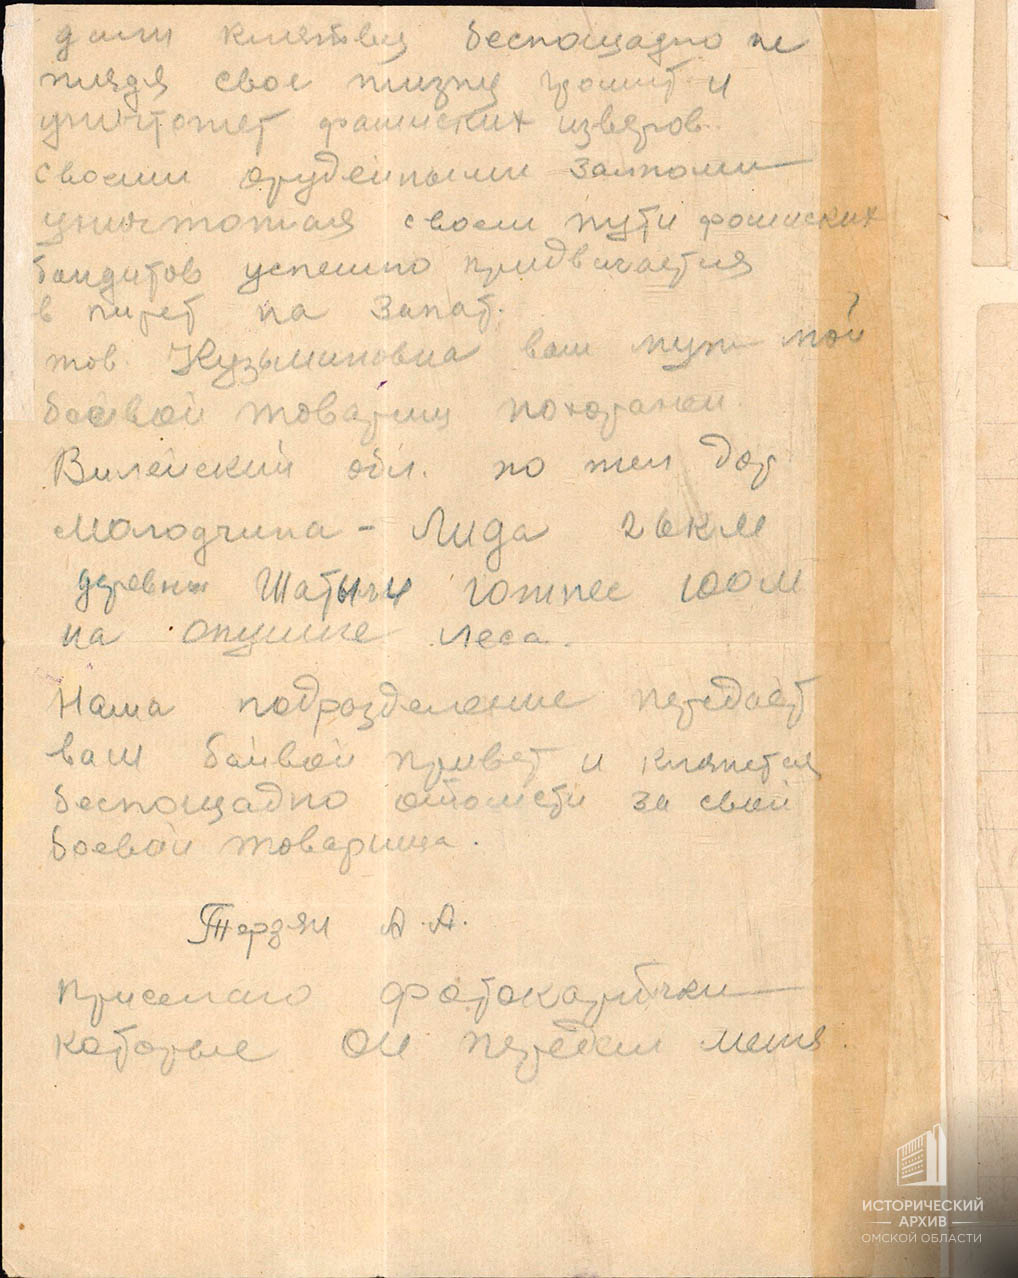 дали клятвы беспощадно не
щядя свое жизну громит и
уничтожет фашиских изверов.
своими орудейными залпоми
уничтожая своем пути фошиских
бандитов успешно придвигается
в пирет на Запат.
тов. Кузьминовна ваш муж мой
боевой товарищ похоранен
Вилейский обл. по жел дор
Молодчина - Лида 26 км
деревни Шатычи южнее 100 м
на опушке леса.
Наша подрозделение передает
ваш баивой привет и клянется
беспощадно отомсти за свой
боевой товарища.
Терзян А.А.
присилаю фотокарточки
которые он передал меня.
ИСТОРИЧЕСКИЙ
АРХИВ
ОМСКОЙ ОБЛАСТИ